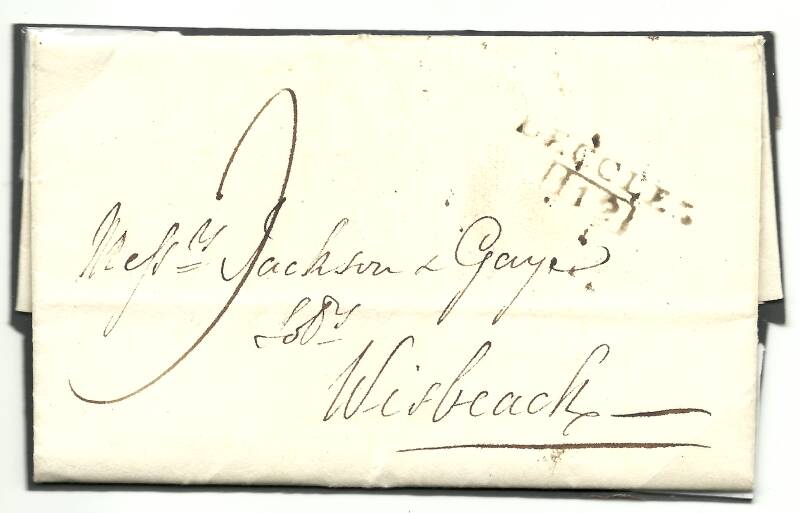 BECCLES
(112)
9
Messrs Jackson & Gayer
Wisbeach